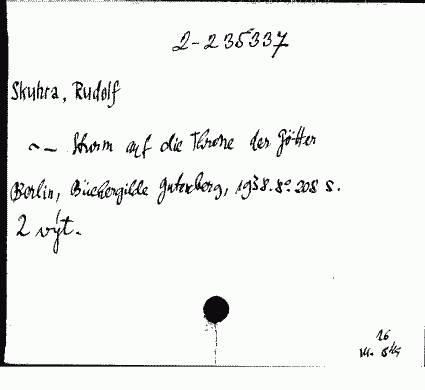 2-235337
Skuhra, Rudolf
~— Sturm auf die Throne der Götter
Berlin, Büchergilde Gutenberg, 1938. 8°. 208 s.
2 výt.
16